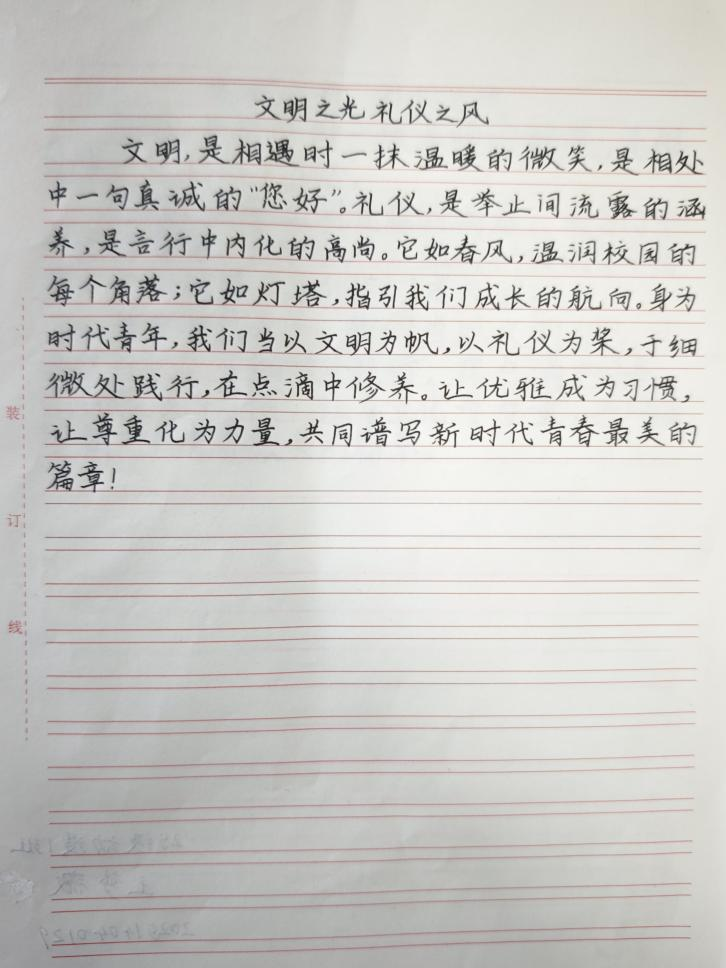 文明之光 礼仪之风
文明,是相遇时一抹温暖的微笑,是相处
中一句真诚的“您好”。礼仪,是举止间流露的涵
养,是言行中内化的高尚。它如春风,温润校园的
每个角落;它如灯塔,指引我们成长的航向。身为
时代青年,我们当以文明为帆,以礼仪为桨,于细
微处践行,在点滴中修养。让优雅成为习惯,
让尊重化为力量,共同谱写新时代青春最美的
篇章!
装
订
线